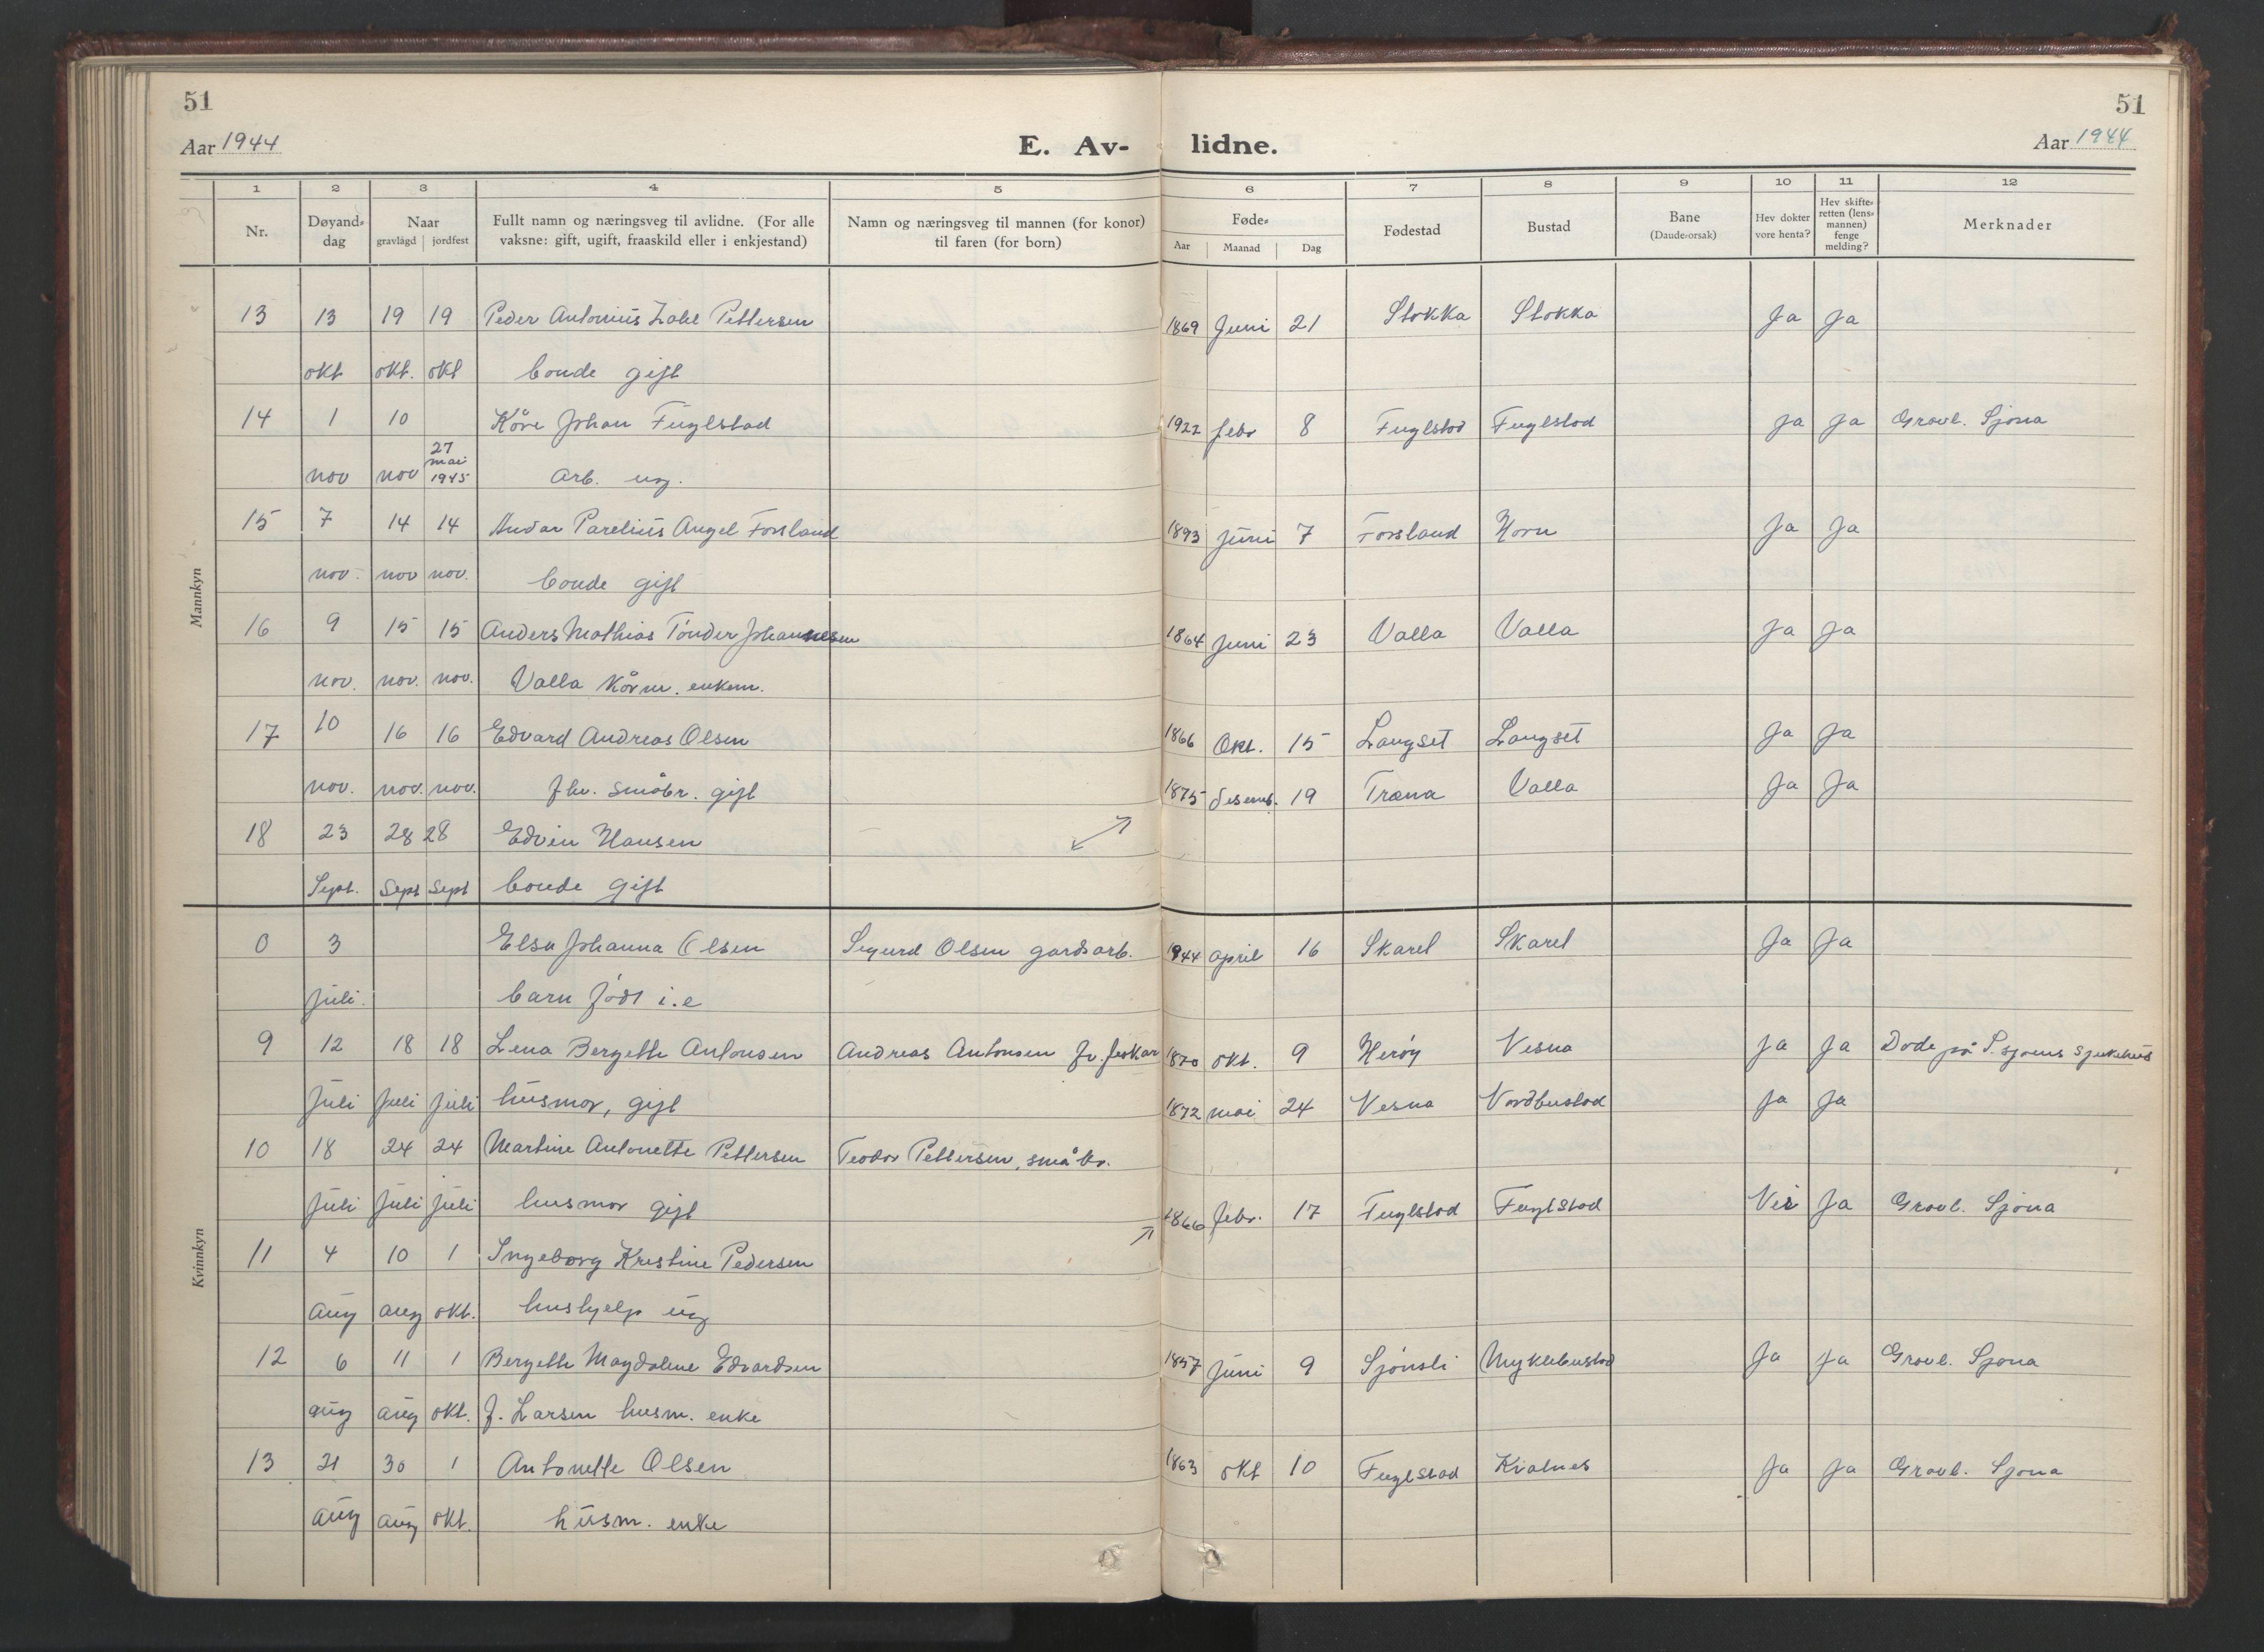 51 51
Aar 1944 E. Av- lidne. Aar 1944
1 2 3 4 5 6 7 8 9 10 11 12
Nr. Døyand-dag Naar gravlagd jordfest Fullt namn og næringsveg til avlidne. (For alle vaksne: gift, ugift, fraaskild eller i enkjestand) Namn og næringsveg til mannen (for konor) til faren (for born) Føde- Aar Maanad Dag Fødestad Bustad Bane (Daude-orsak) Hev dokter vore henta? Hev skifte-retten (lens-mannen) fenge melding? Merknader
Mannkyn
13 13 19 19 Peder Antonius Pettersen 1869 Juni 21 Stokka Stokka Ja Ja
okt okt. okt bonde gift
14 1 10 Kåre Johan Fuglstad 1922 febr 8 Fuglstad Fuglstad Ja Ja Gravl. Sjona
nov nov 27 mai 1945 arb. ug.
15 7 14 14 Parelius Angel Forsland 1893 juni 7 Forsland Horn Ja Ja
nov. nov nov. bonde gift
16 9 15 15 Anders Mathias Tönder Johannesen 1864 juni 23 Valla Valla Ja Ja
nov. nov. nov. Valla kårm. enkem.
17 10 16 16 Edvard Andreas Olsen 1866 Okt. 15 Langset Langset Ja Ja
nov. nov. nov. fhv. småbr. gift 1875 desemb. 19 Træna Valla Ja Ja
18 23 28 28 Edvin Hansen
Sept. Sept Sept bonde gift
Kvinnkyn
0 3 Elsa Johanna Olsen Sigurd Olsen gardsarb. 1944 april 16 Skarel Skarel Ja Ja
juli. barn født i.e
9 12 18 18 Lena Bergette Antonsen Andreas Antonsen fv. feskar 1870 okt. 9 Herøy Vesna Ja Ja Døde på S.sjøens sjukehus
Juli Juli juli husmor, gift 1872 mai 24 Vesna Nordbustad Ja Ja
10 18 24 24 Martine Antonette Pettersen Teodor Pettersen, småbr.
Juli Juli Juli husmor gift 1866 febr. 17 Fuglstad Fuglstad Nei Ja Gravl. Sjona
11 4 10 1 Ingeborg Kristine Pedersen
aug aug okt. hushjelp ug
12 6 11 1 Bergette Magdalene Edvardsen 1857 juni 9 Sjönsli Myklebustad Ja Ja Gravl. Sjona
aug aug okt. f. Larsen husm. enke
13 21 30 1 Antonette Olsen 1863 okt 10 Fuglstad Kvalnes Ja Ja Gravl. Sjona
aug aug okt. husm. enke